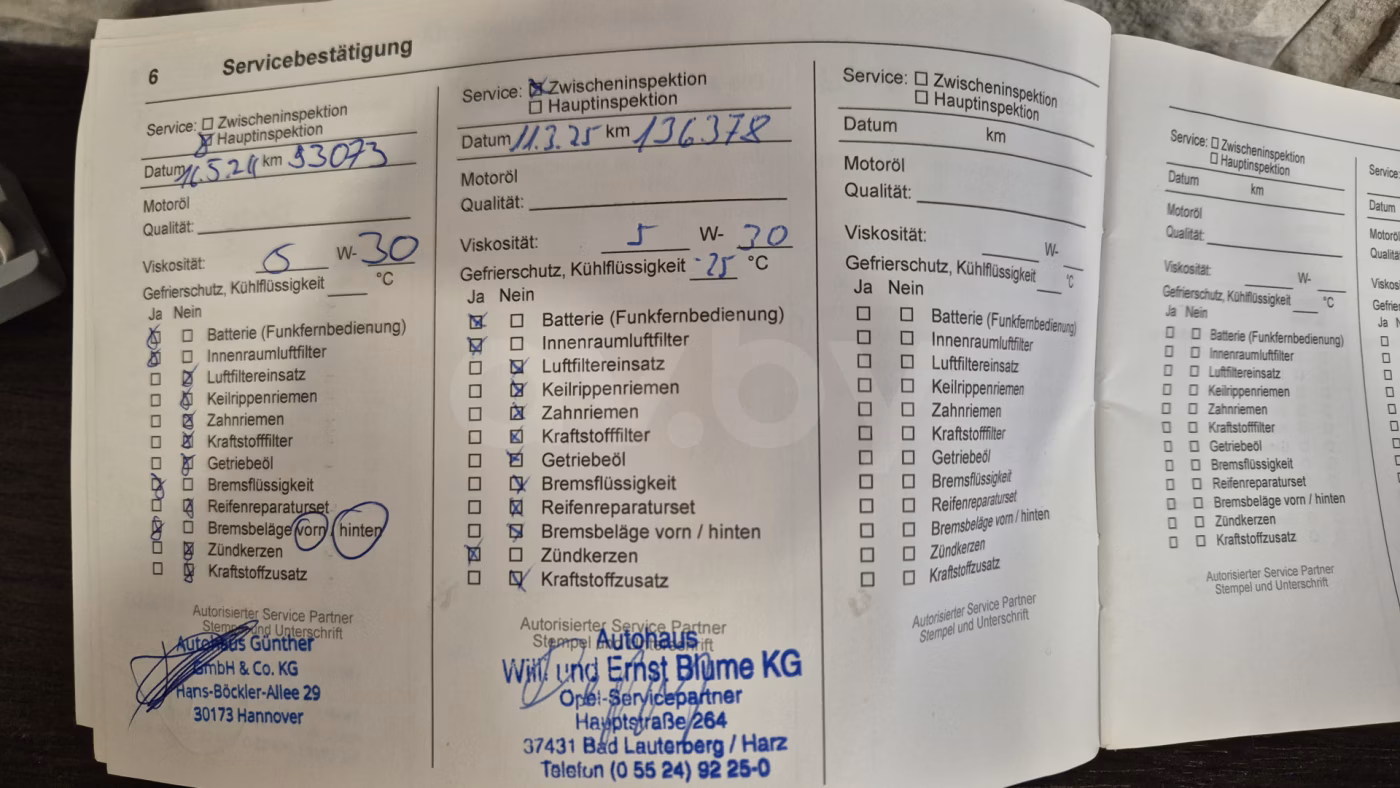 6 Servicebestätigung
Service: Zwischeninspektion
Hauptinspektion
Datum 16.5.24 km 93073
Motoröl
Qualität:
Viskosität: 5 W- 30
Gefrierschutz, Kühlflüssigkeit °C
Ja Nein
Batterie (Funkfernbedienung)
Innenraumluftfilter
Luftfiltereinsatz
Keilrippenriemen
Zahnriemen
Kraftstofffilter
Getriebeöl
Bremsflüssigkeit
Reifenreparaturset
Bremsbeläge vorn / hinten
Zündkerzen
Kraftstoffzusatz
Autorisierter Service Partner
Stempel und Unterschrift
Autohaus Günther
GmbH & Co. KG
Hans-Böckler-Allee 29
30173 Hannover
Service: Zwischeninspektion
Hauptinspektion
Datum 11.3.25 km 136378
Motoröl
Qualität:
Viskosität: 5 W- 30
Gefrierschutz, Kühlflüssigkeit -25 °C
Ja Nein
Batterie (Funkfernbedienung)
Innenraumluftfilter
Luftfiltereinsatz
Keilrippenriemen
Zahnriemen
Kraftstofffilter
Getriebeöl
Bremsflüssigkeit
Reifenreparaturset
Bremsbeläge vorn / hinten
Zündkerzen
Kraftstoffzusatz
Autorisierter Service Partner
Stempel und Unterschrift
Autohaus
Willi und Ernst Blume KG
Opel-Servicepartner
Hauptstraße 264
37431 Bad Lauterberg / Harz
Telefon (0 55 24) 92 25-0
Service: Zwischeninspektion
Hauptinspektion
Datum km
Motoröl
Qualität:
Viskosität: W-
Gefrierschutz, Kühlflüssigkeit °C
Ja Nein
Batterie (Funkfernbedienung)
Innenraumluftfilter
Luftfiltereinsatz
Keilrippenriemen
Zahnriemen
Kraftstofffilter
Getriebeöl
Bremsflüssigkeit
Reifenreparaturset
Bremsbeläge vorn / hinten
Zündkerzen
Kraftstoffzusatz
Autorisierter Service Partner
Stempel und Unterschrift
Service: Zwischeninspektion
Hauptinspektion
Datum km
Motoröl
Qualität:
Viskosität: W-
Gefrierschutz, Kühlflüssigkeit °C
Ja Nein
Batterie (Funkfernbedienung)
Innenraumluftfilter
Luftfiltereinsatz
Keilrippenriemen
Zahnriemen
Kraftstofffilter
Getriebeöl
Bremsflüssigkeit
Reifenreparaturset
Bremsbeläge vorn / hinten
Zündkerzen
Kraftstoffzusatz
Autorisierter Service Partner
Stempel und Unterschrift
Service:
Datum
Ja
av.by